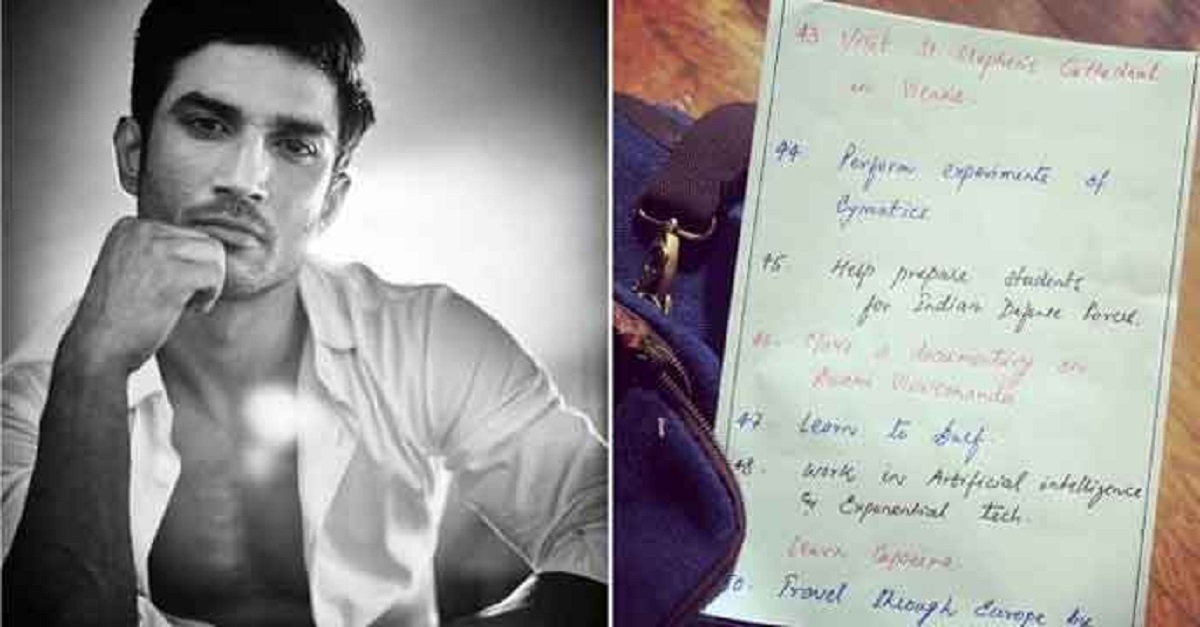 43 Visit St Stephen's Cathedral
in Vienna
44. Perform experiments of
Cymatics
45. Help prepare students
for Indian Defense Forces.
46. Make a documentary on
Swami Vivekananda
47. Learn to Surf.
48. Work in Artificial intelligence
& Exponential tech.
Learn Capoeira.
50. Travel through Europe by